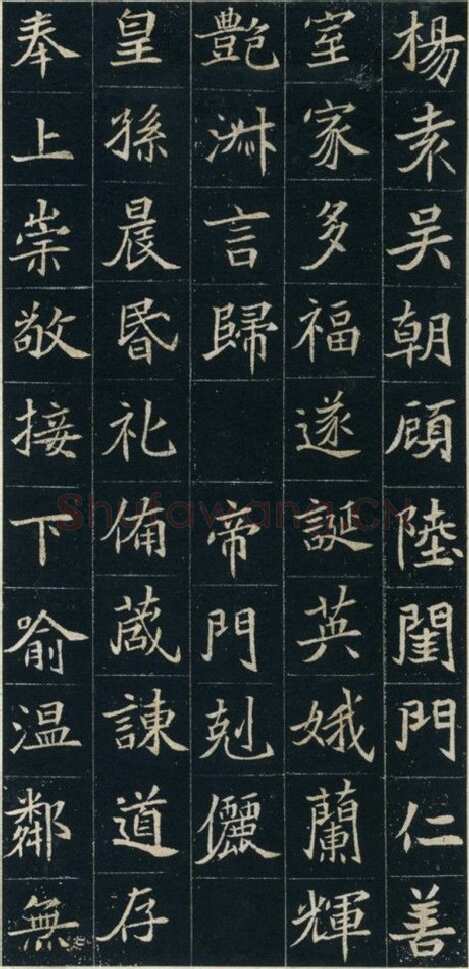 楊袁吳朝顧陸閨門仁善
室家多福遂誕英娥蘭輝
豔淑言歸 帝門剋儷
皇孫晨昬礼備葴諫道存
奉上崇敬接下喻温鄰無
Shufawang.CN